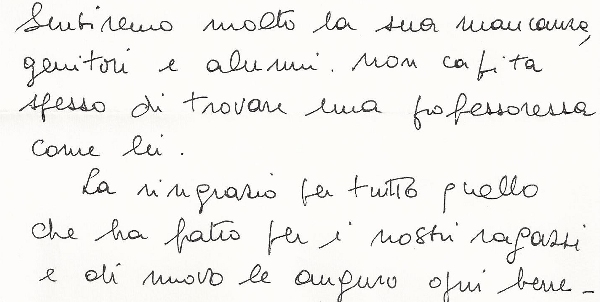 Sentiremo molto la sua mancanza,
genitori e alunni. Non capita
spesso di trovare una professoressa
come lei.
La ringrazio per tutto quello
che ha fatto per i nostri ragazzi
e di nuovo le auguro ogni bene -